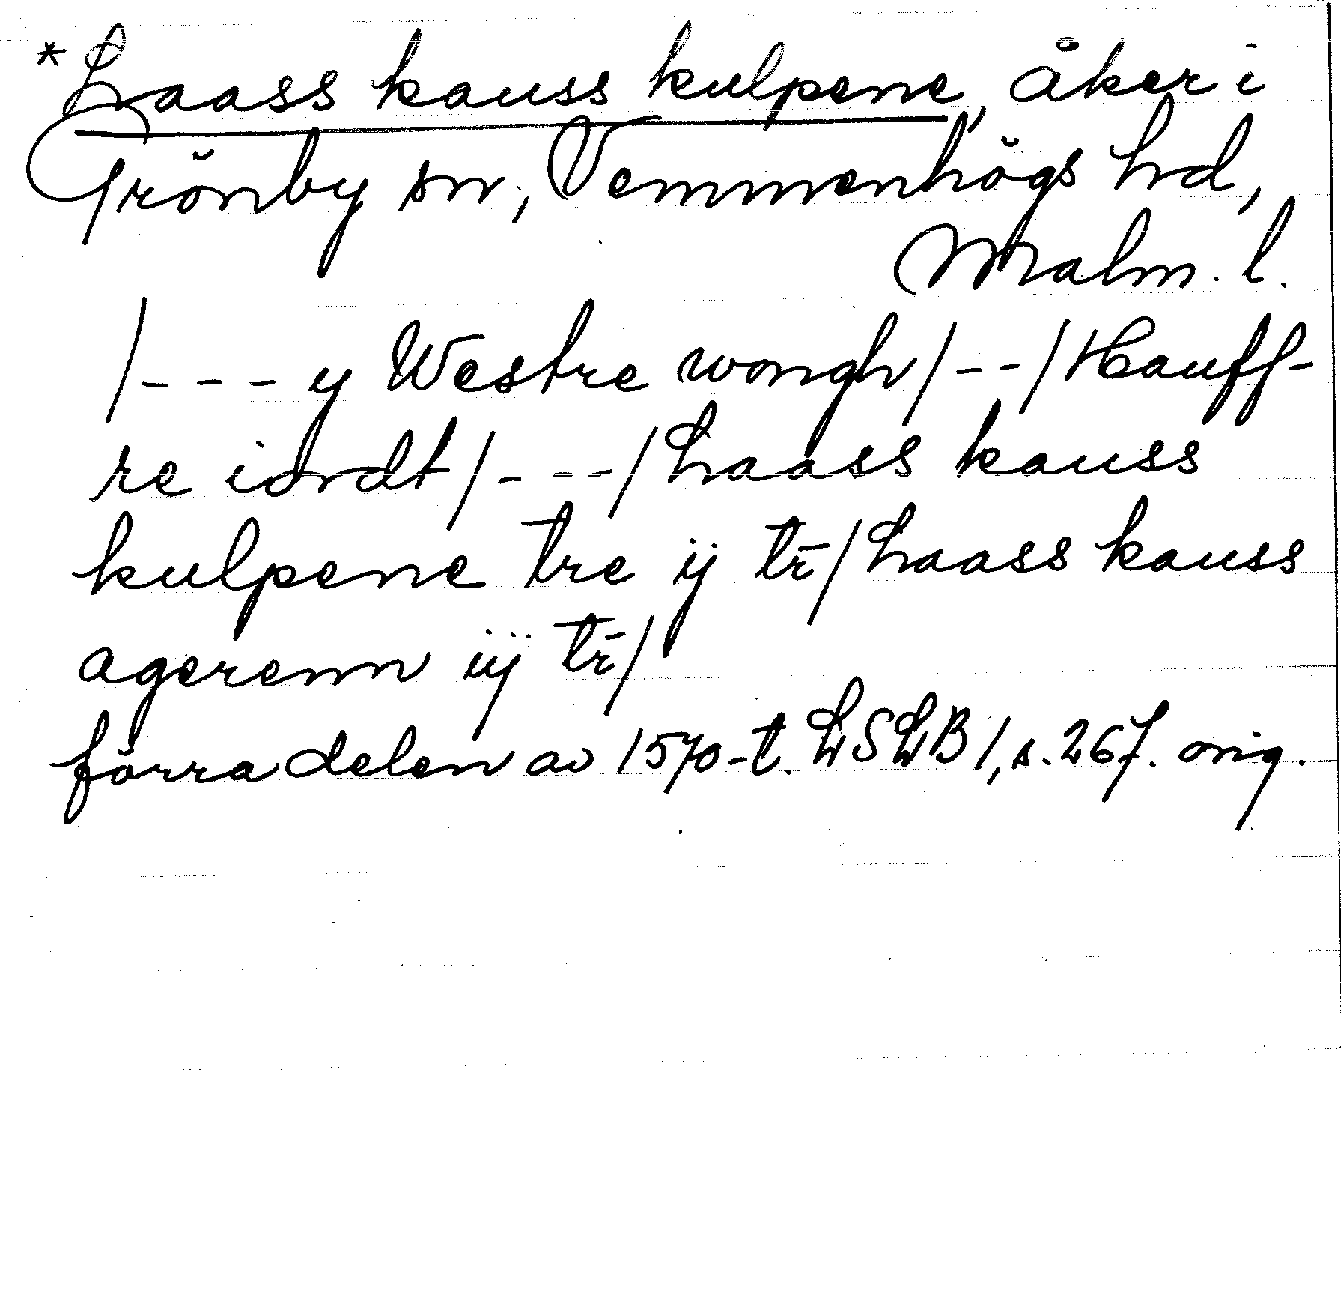 *Laass kauss kulpene, åker i
Grönby sn, Vemmenhögs hd,
Malm. l.
/- - - y Westre wongh/- -/Hauff-
re iordt/- - -/Laass kauss
kulpene tre ij tr̄/Laass kauss
agerenn iij tr̄/
förra delen av 1570-t. LSLB 1, s. 267. orig.